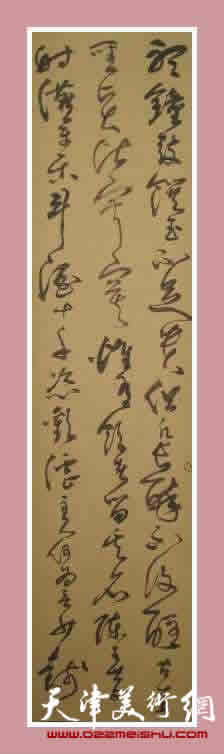 聽鐘鼓饌玉不足貴但願長醉不復醒古來
聖賢皆寂寞惟有飲者留其名陳王昔
時宴平樂斗酒十千恣歡謔主人何為言少錢
天津美術網
www.022meishu.com